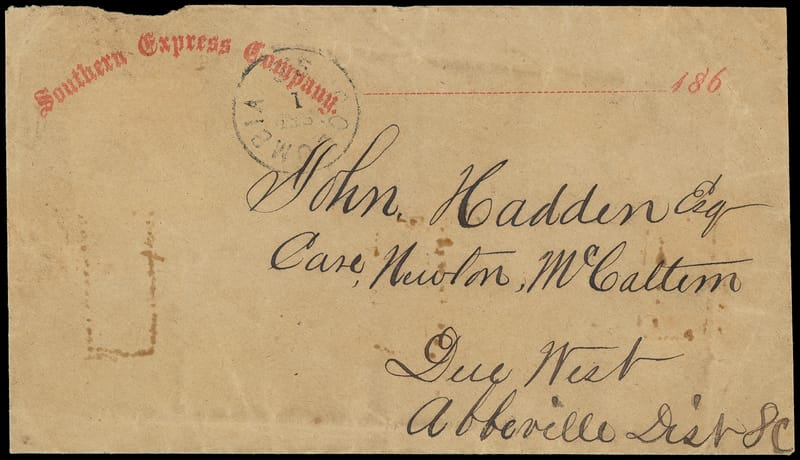 Southern Express Company.
186
COLUMBIA
1
John, Hadden Esq
Care, Newton, McCaltem
Due West
Abbeville Dist SC